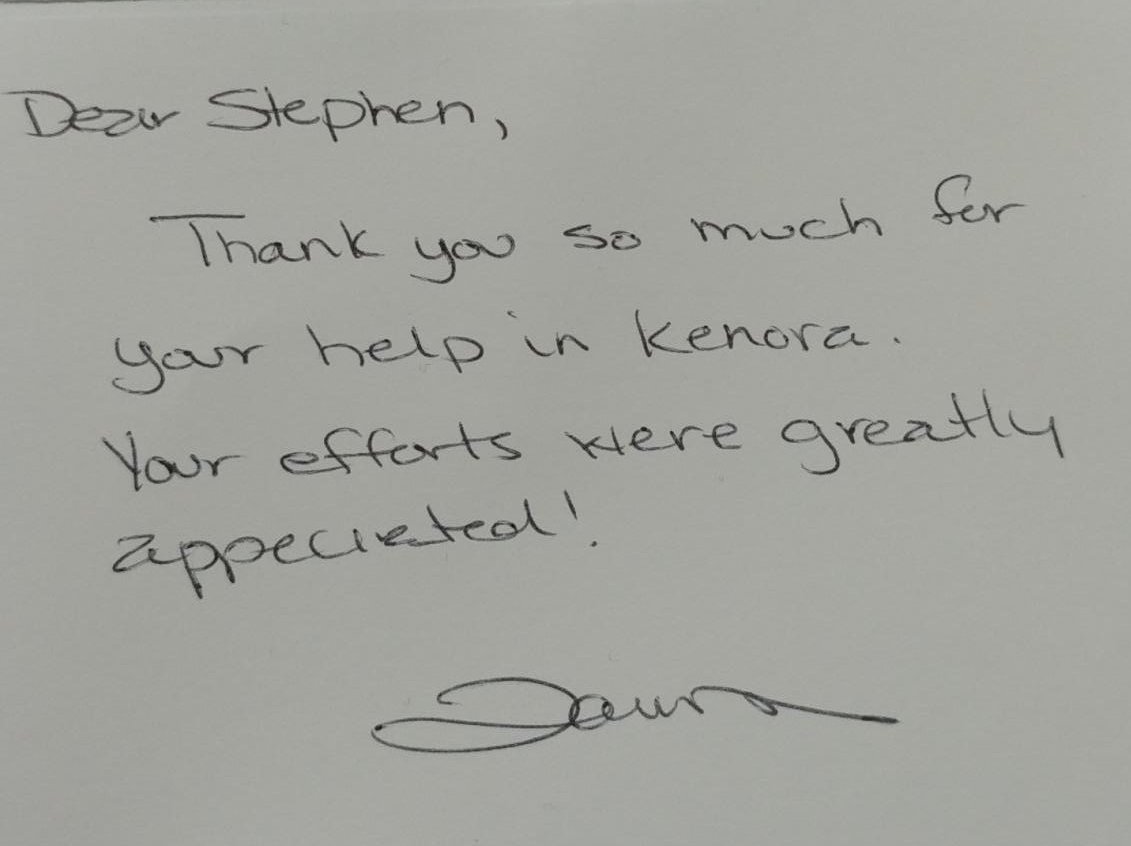 Dear Stephen,
Thank you so much for
your help in Kenora.
Your efforts were greatly
appeciated!
Laura